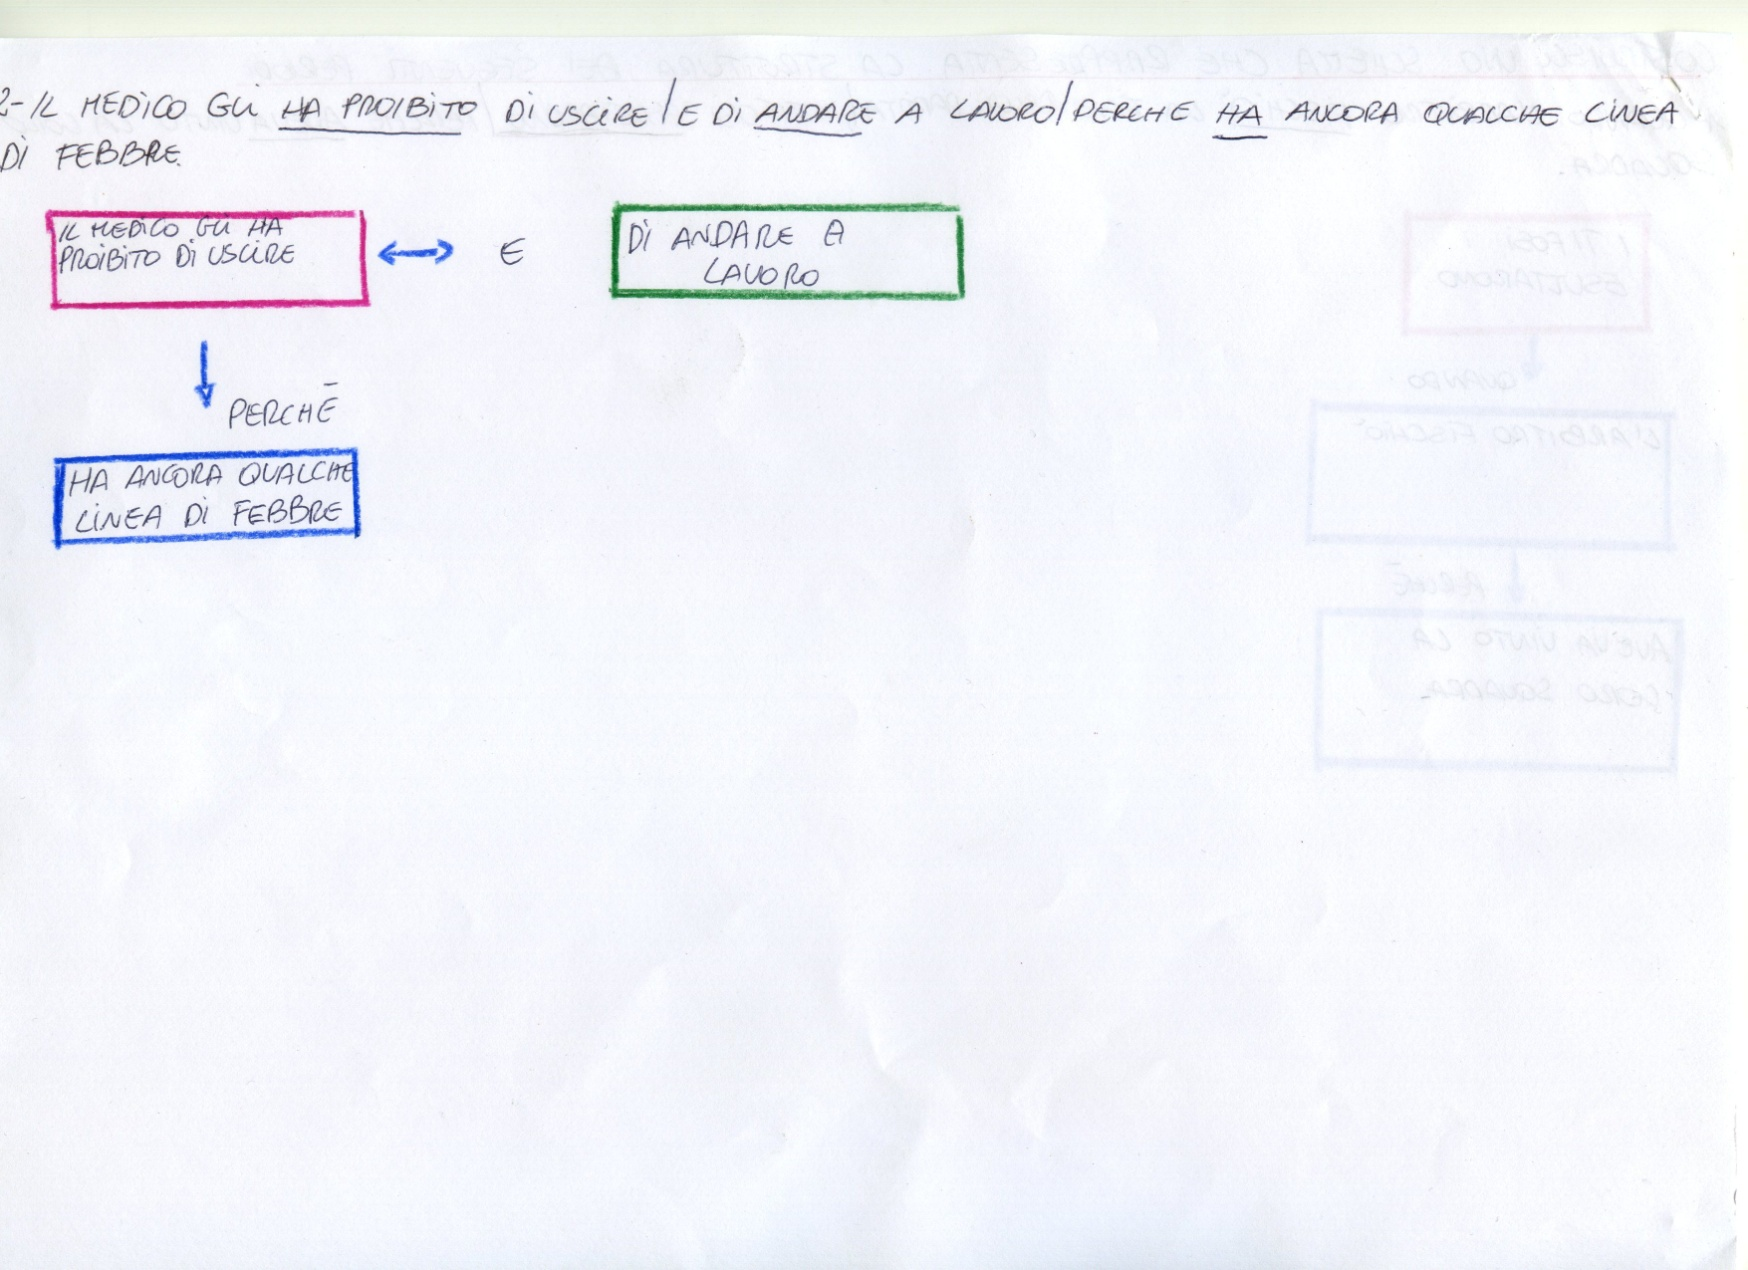 2- IL MEDICO GLI HA PROIBITO DI USCIRE / E DI ANDARE A LAVORO / PERCHE HA ANCORA QUALCHE LINEA
DI FEBBRE.
IL MEDICO GLI HA
PROIBITO DI USCIRE
E
DI ANDARE A
LAVORO
PERCHÉ
HA ANCORA QUALCHE
LINEA DI FEBBRE